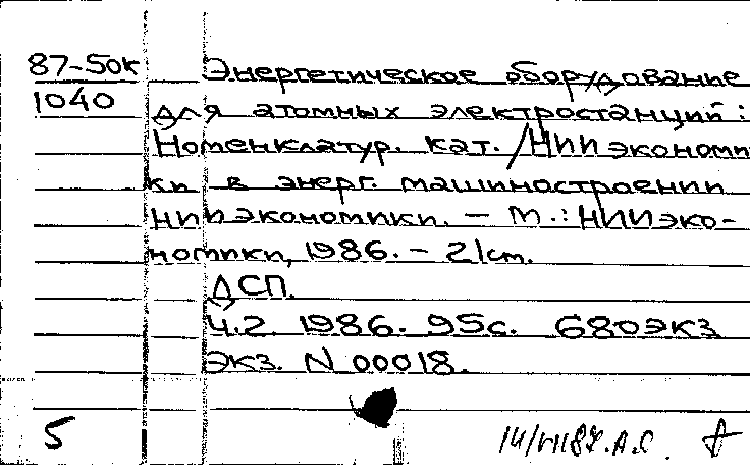 87-50к Энергетическое оборудование
1040 для атомных электростанций:
Номенклатур. кат. /НИИ эконом
ки в энерг. машиностроении
НИИэкономики. – М.: НИИэко-
номики, 1986. – 21см.
ДСП.
Ч.2. 1986. 95с. 680экз
экз. N 00018.
5
14/VII87. А.С.